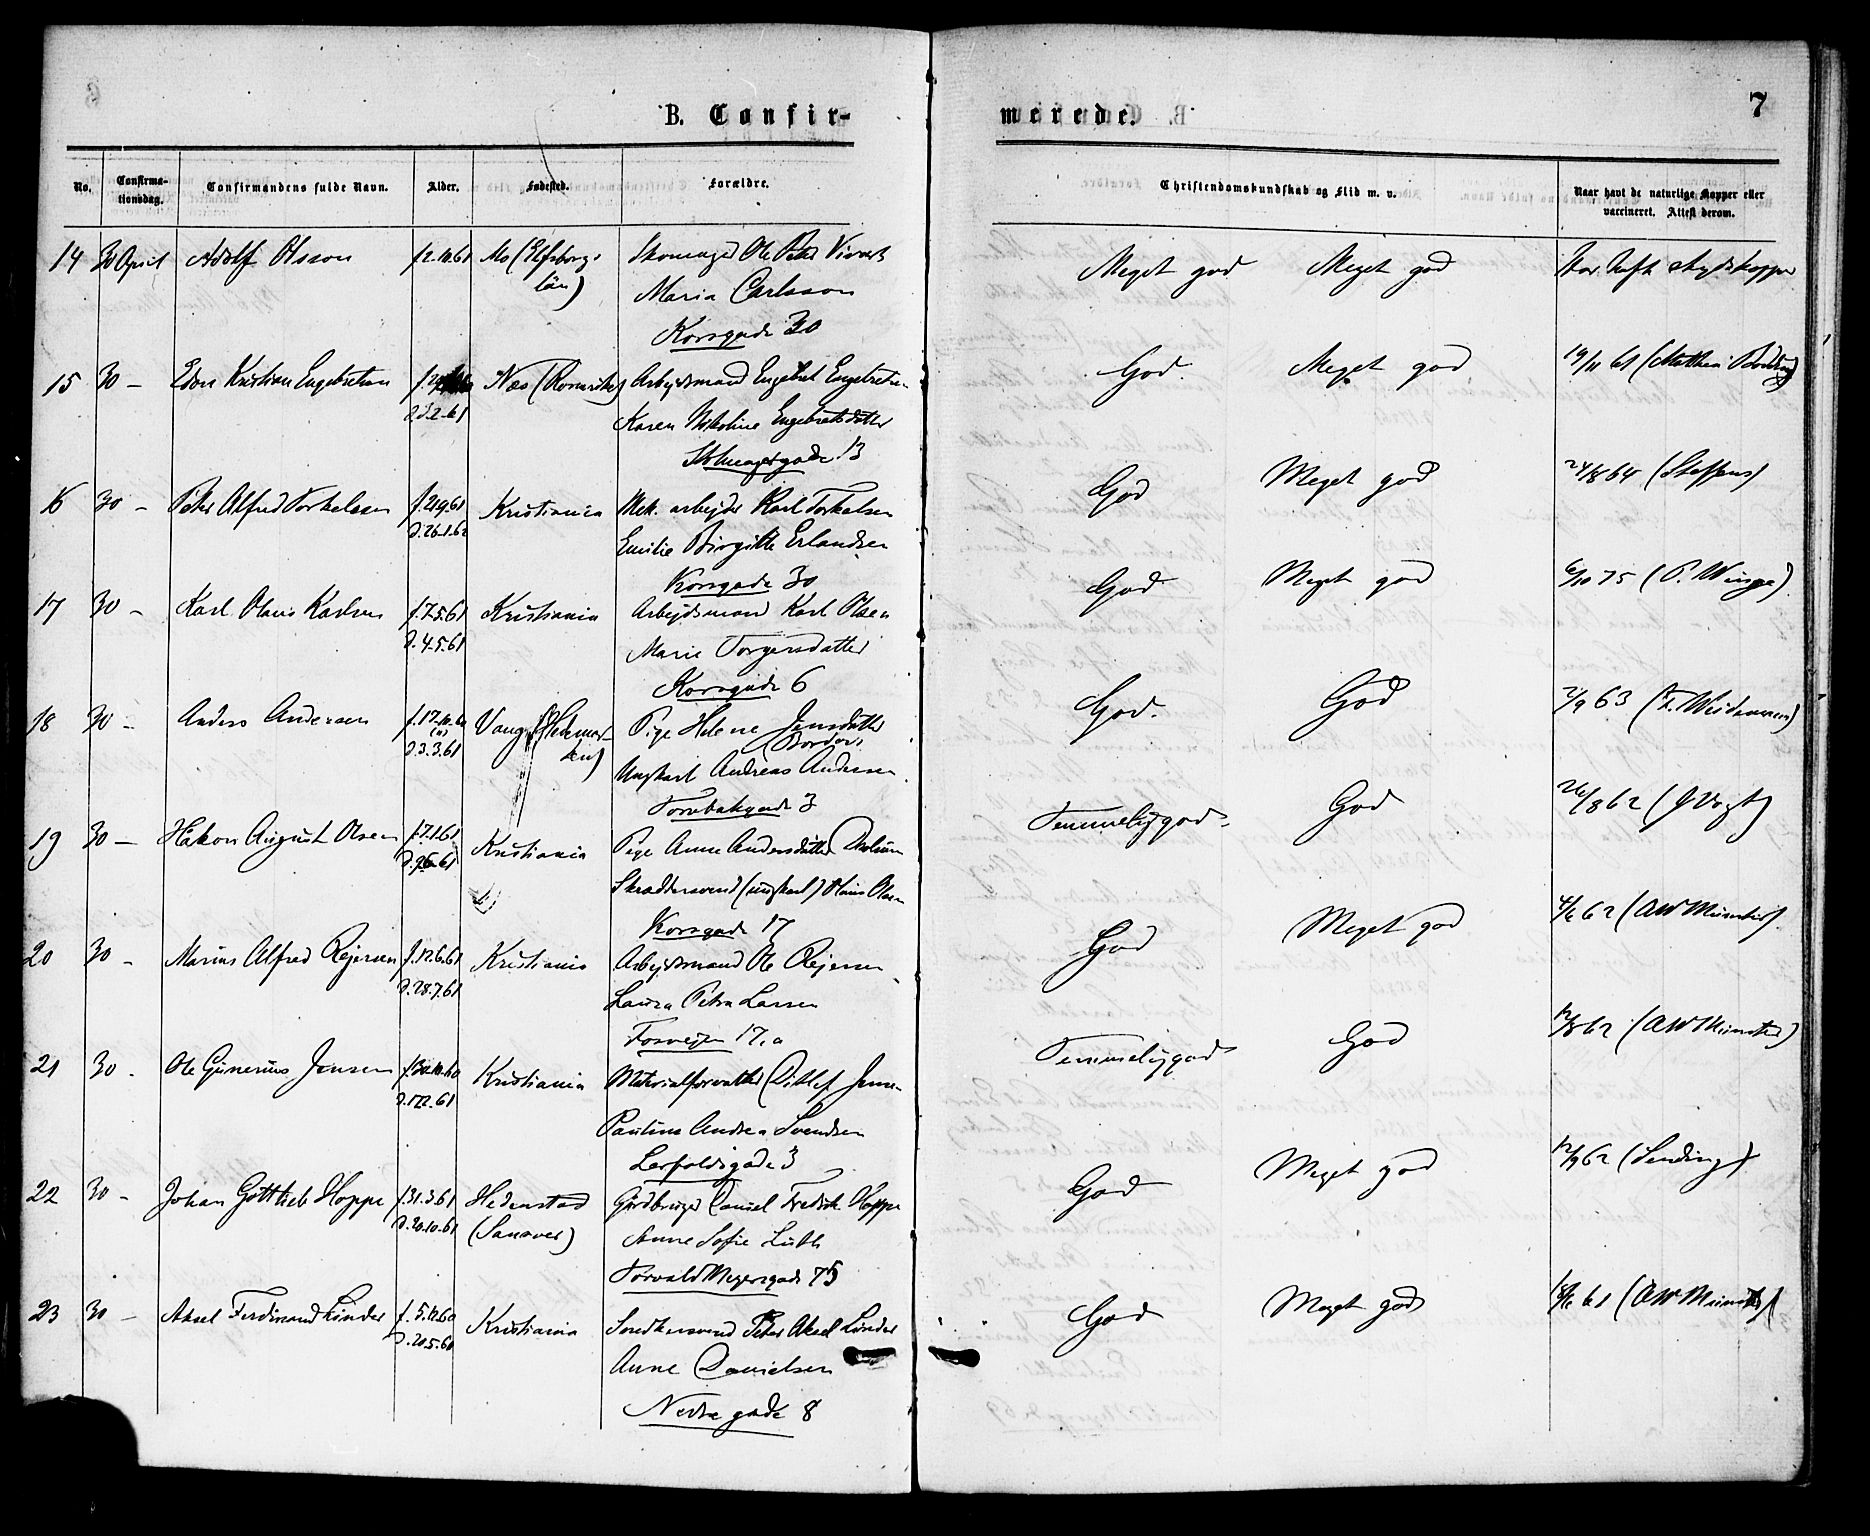 B. Confir-
merede.
7
No.
Confirma-
tionsdag.
Confirmandens fulde Navn.
Alder.
Fødested.
Forældre.
Christendomskundskab og Flid m. v.
Naar havt de naturlige Kopper eller
vaccineret. Attest derom.
14 30 April Adolf Olsson f 2.10.61 Mo (Elfsborgs Skomager Ole Peter Meget god Meget god
län) Maria Carlsson
Korsgade 30
15 30 - Kristian Engebretsen Næs (Romerike) Arbejdsmand Engebret Engebretsen God. Meget god 19/11 61
Karen Nikoline Engebretsdatter
Skomagergade 13
16 30 - Peter Alfred Torkelsen f. 21.9.61 Kristiania Mek. arbejder Karl Torkelsen God Meget god 24/8 64 (Steffens)
d. 26.1.62 Emilie Birgitte Erlandsen
Korsgade 30
17 30 - Karl Olaus Karlsen f. 7.5.61 Kristiania Arbejdsmand Karl Olsen God Meget god 6/10 75 (P. Winge)
Marie Torgersdatter
Korsgade 6
18 30 - Anders Andersen Vang (Hedemar- Pige Helene Jensdatter God. God 2/9 63
d 3.3.61 ken)
Ungkarl Andreas Andersen
3
19 30 - Håkon August Olsen f. 7.1.61 Kristiania Pige Anne Andersdatter Temmelig god. God 26/8 62 (J Vogt)
Skræddersvend (ungkarl) Olaus Olsen
Korsgade 17
20 30 - Marius Alfred Rejersen f. 12.6.61 Kristiania Arbejdsmand Ole Rejersen God Meget god 4/6 62 (AW Münster)
d. 28.7.61 Laura Petra Larsen
Fosvejen 17,a
21 30 - Ole Gunerius Jensen f. 30.10.60 Kristiania Materialforvalter Ditlef Jensen Temmelig god God 12/8 62 (AW Münster)
d. 17.2.61 Pauline Andrea Svendsen
Leopoldsgade 3
22 30 - Johan Gottlieb Hoppe f. 31.3.61 Hedenstad Gjørdbruger Daniel Fredrik Hoppe God Meget god 12/9 62 (Sending)
d. 20.10.61 Anne Sofie Luth
Torvald Meyersgade 75
23 30 - Aksel Ferdinand Linder f. 5.12.60 Kristiania Snedkersvend Peter Aksel Linder God Meget god (AW Münster)
d. 20.5.61 Anne Danielsen
Nedre gade 8